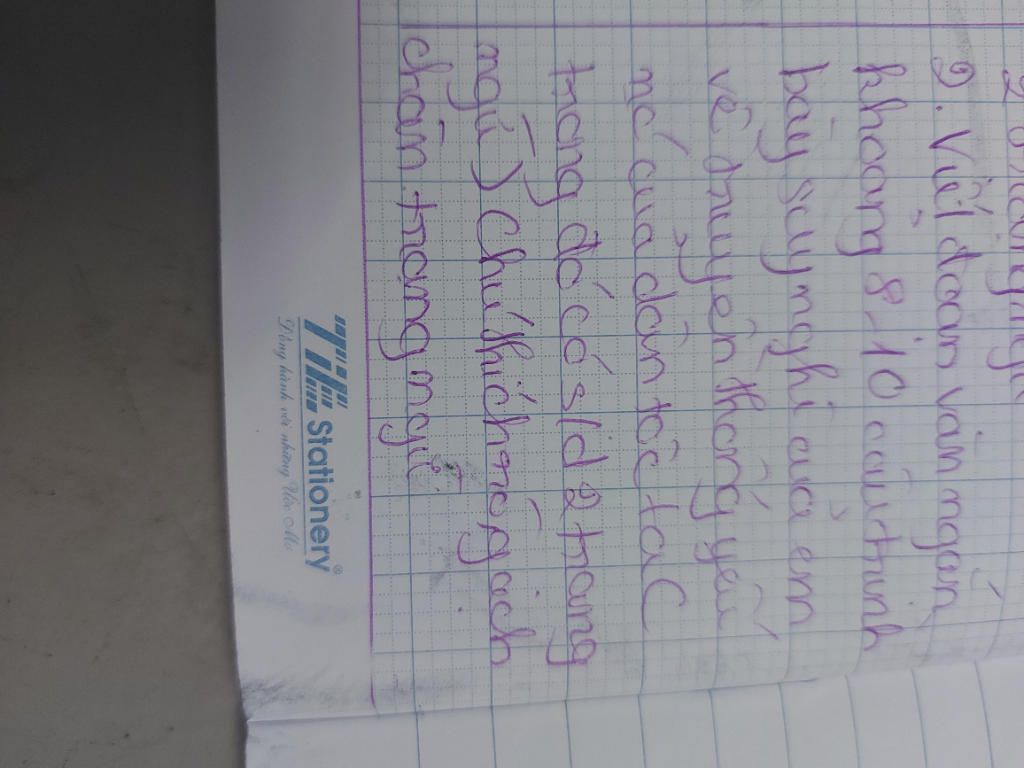 2. Viết đoạn văn ngắn
khoảng 8-10 câu trình
bày suy nghĩ của em
về truyền thống yêu
nước của dân tộc ta (
trong đó có s/d 2 trạng
ngữ) Chú thích rõ gạch
chân trạng ngữ.
Stationery
Đồng hành với những Ước Mơ